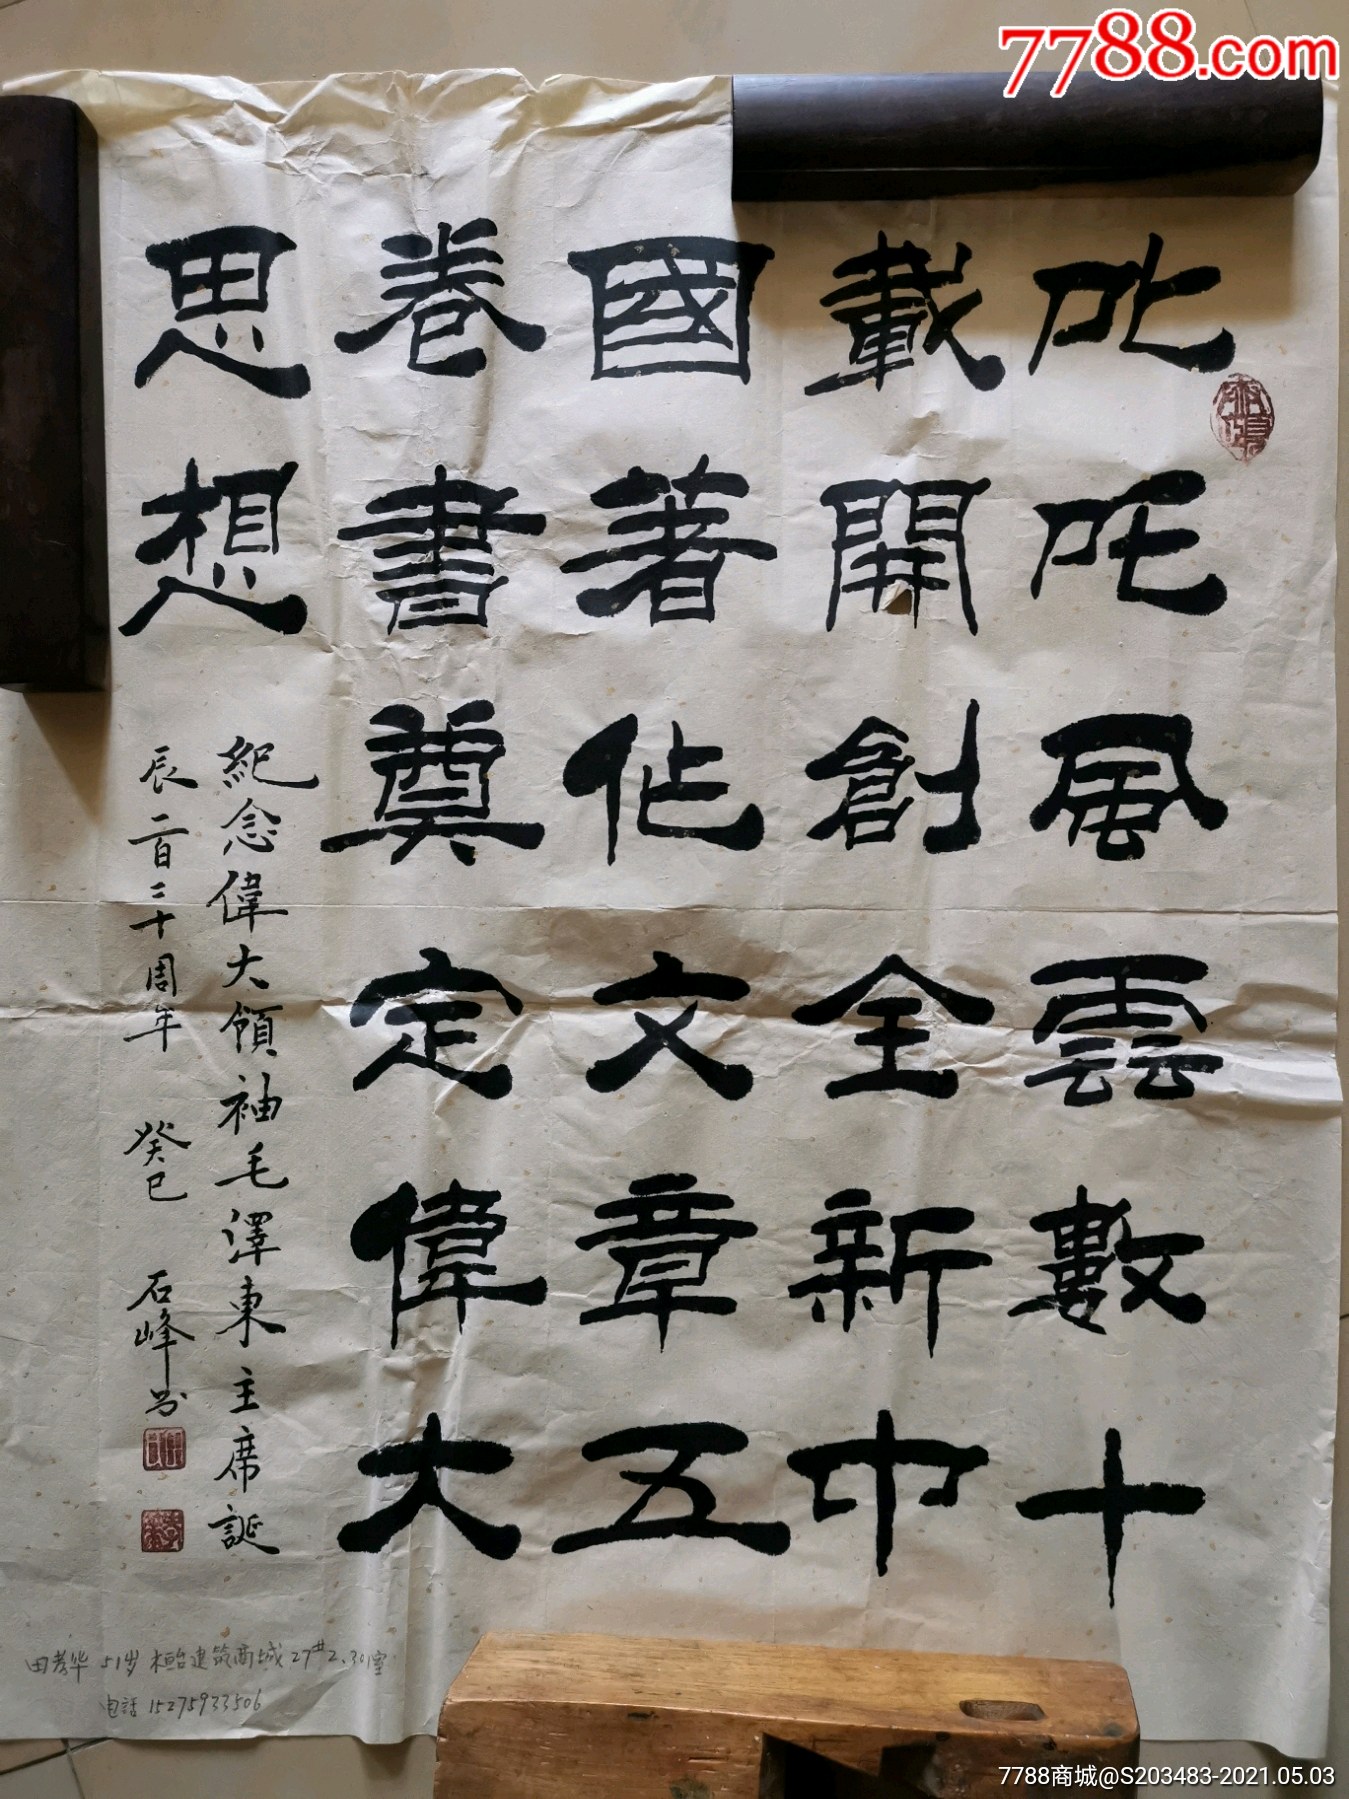 7788.com
叱咤風雲數十
載開創全新中
國著作文章五
卷書奠定偉大
思想
紀念偉大領袖毛澤東主席誕
辰一百二十周年 癸巳 石峰书
田孝华 51岁 桓台建筑商城27#2.301室
电話 15275933506
7788商城@S203483-2021.05.03